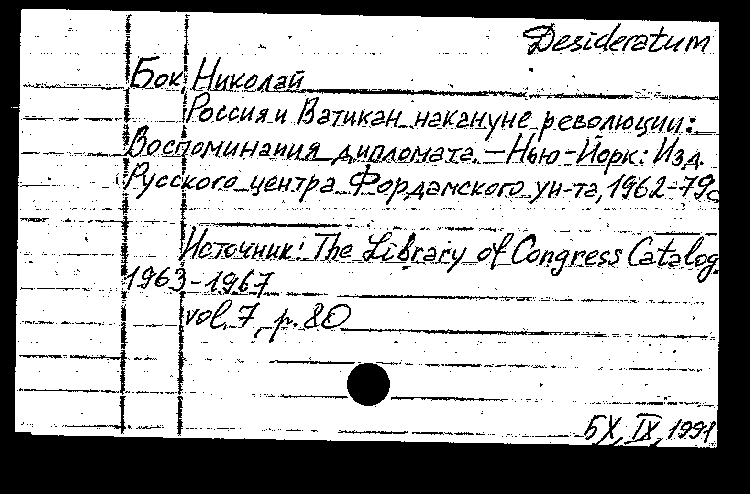 Desideratum
Бок, Николай
Россия и Ватикан накануне революции:
Воспоминания дипломата. — Нью-Йорк: Изд.
Русского центра Фордамского ун-та, 1962-79с
Источник: The Library of Congress Catalog
1963-1967
vol. 7, p. 80
БХ, IX, 1991